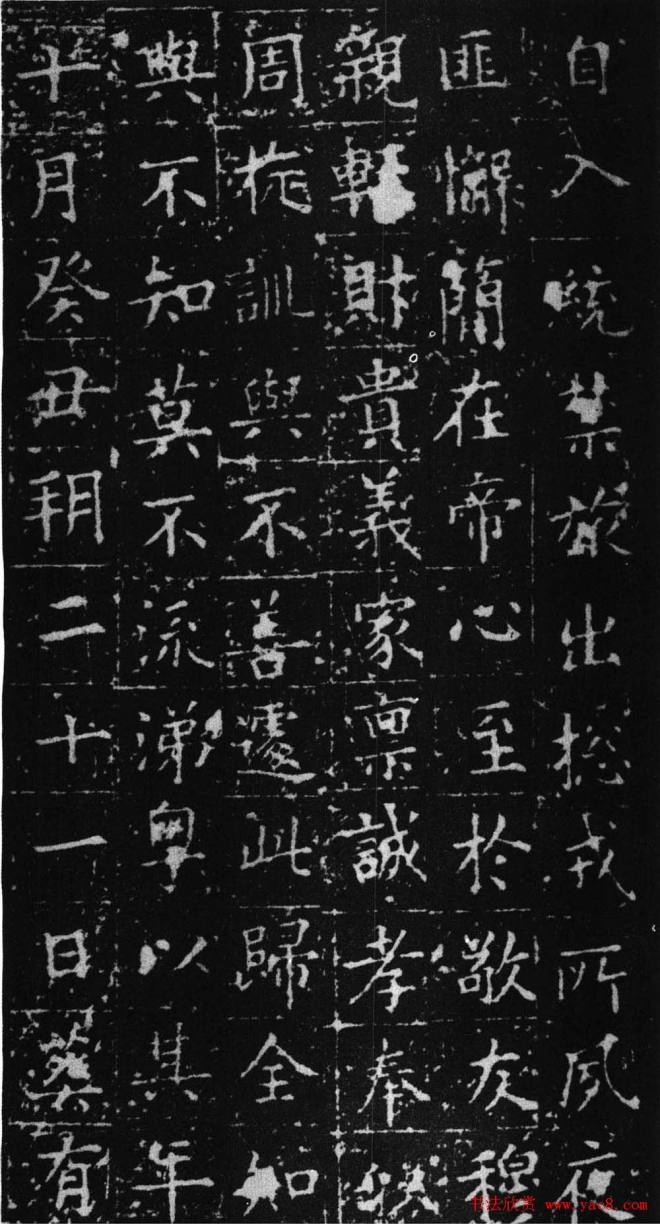 自入統禁旅出摠戎所夙夜
匪懈簡在帝心至於敬友穆
親輕財貴義家禀誠孝奉以
周旋訓與不善遽此歸全知
與不知莫不流涕粵以其年
十月癸丑朔二十一日葬有
书法欣赏 www.yac8.com